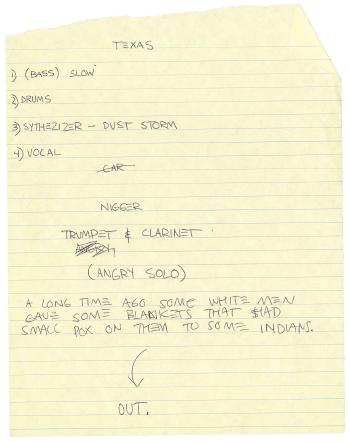 TEXAS
1) (BASS) SLOW
2) DRUMS
3) SYTHEZIZER – DUST STORM
4) VOCAL
CAR
NIGGER
TRUMPET & CLARINET
ANGRY
(ANGRY SOLO)
A LONG TIME AGO SOME WHITE MEN
GAVE SOME BLANKETS THAT HAD
SMALL POX ON THEM TO SOME INDIANS.
OUT.